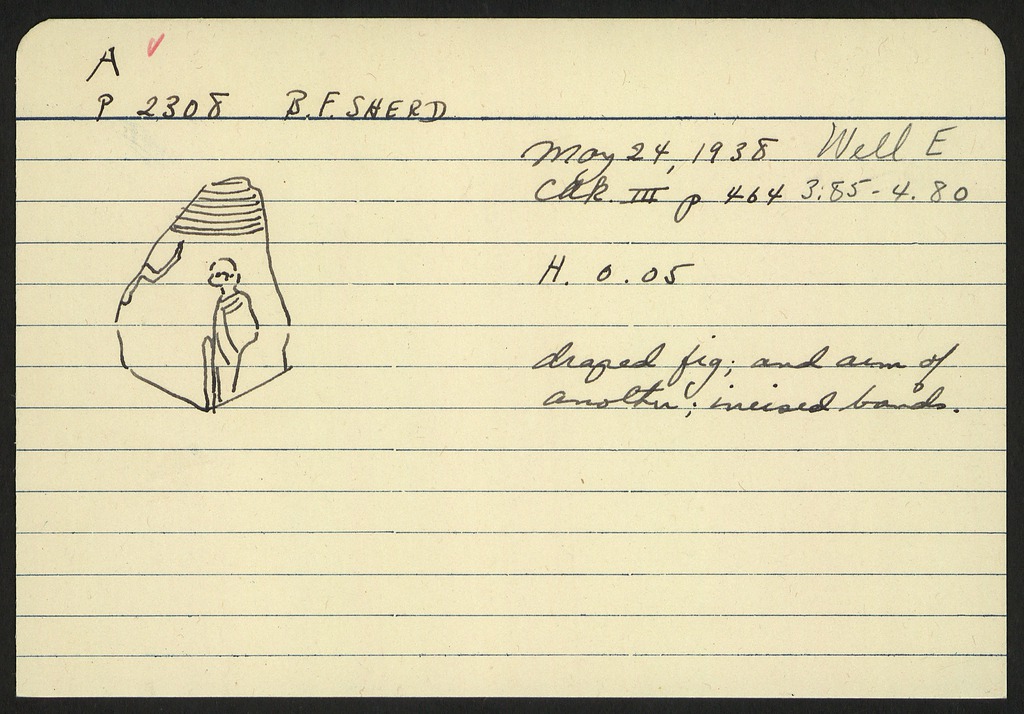 A
P 2308 B.F. SHERD
May 24, 1938 Well E
III p 464 3.85-4.80
H. 0.05
draped fig; and arm of
another; incised bands.